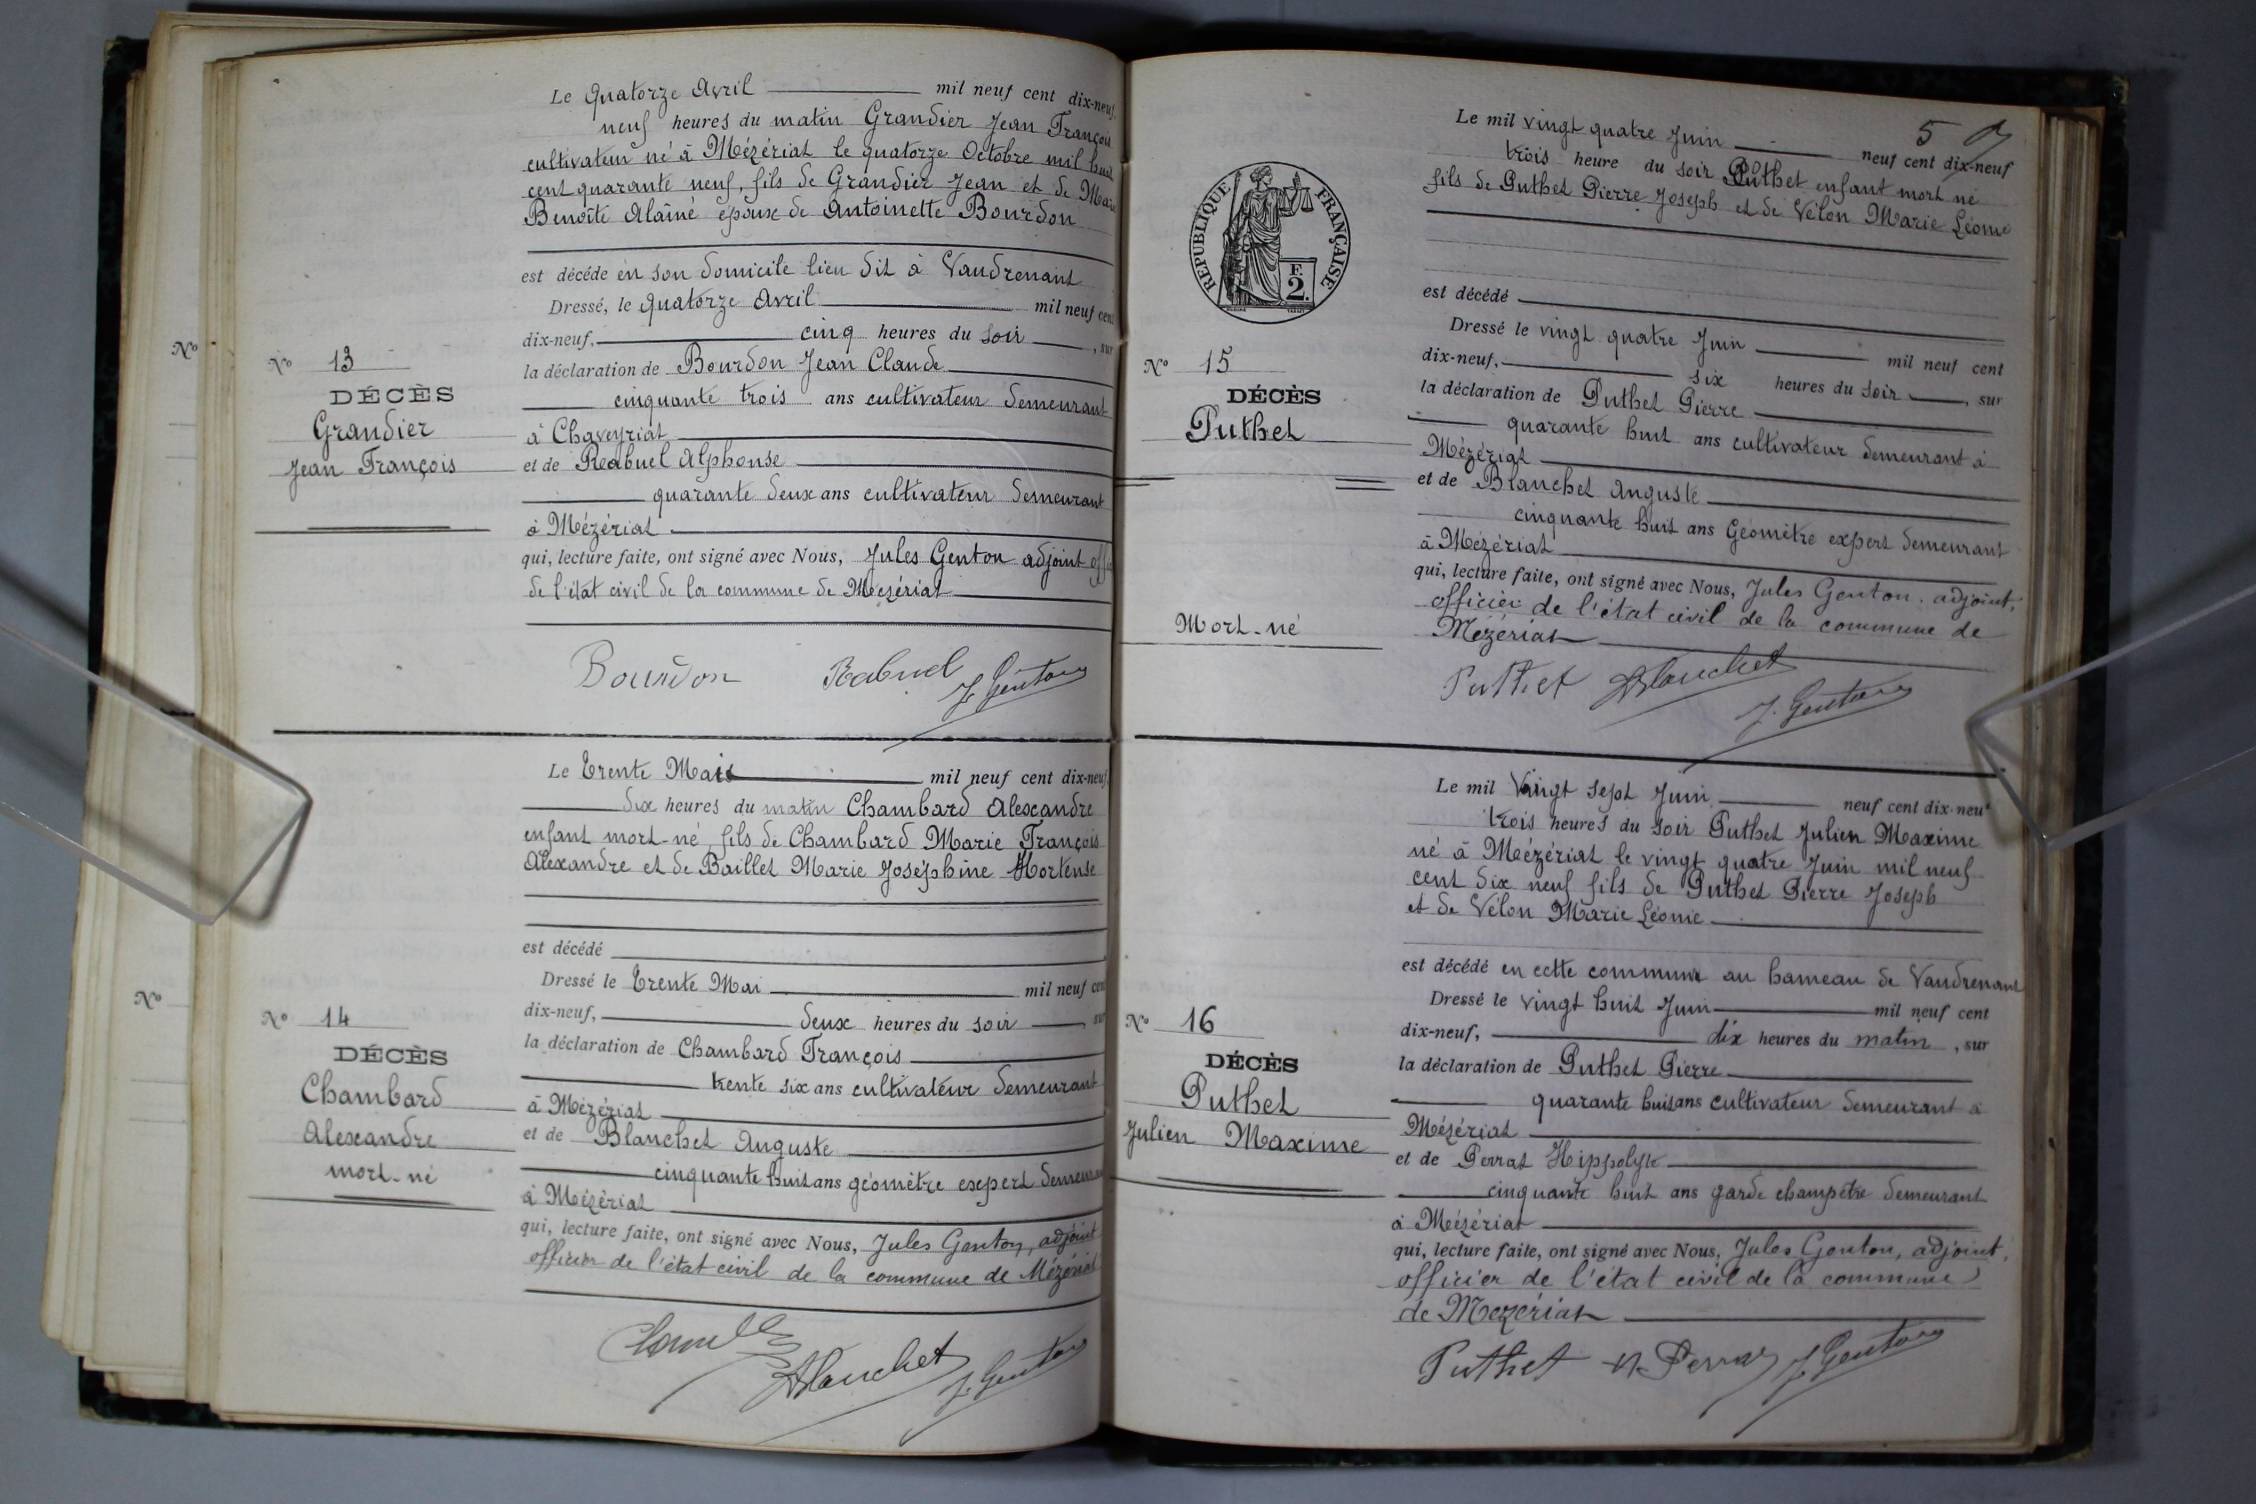 Le Quatorze Avril mil neuf cent dix-neuf,
neuf heures du matin Grandier Jean François
cultivateur né à Mézériat le quatorze Octobre mil huit
cent quarante neuf, fils de Grandier Jean et de Marie
Benoîte Alaîné époux de Antoinette Bourdon
est décédé en son domicile lieu dit à Vaudrenant
Dressé, le quatorze Avril mil neuf cent
dix-neuf, cinq heures du soir, sur
la déclaration de Bourdon Jean Claude
cinquante trois ans cultivateur demeurant
à Chaveyriat
et de Reabuel Alphonse
quarante deux ans cultivateur demeurant
à Mézériat
qui, lecture faite, ont signé avec Nous, Jules Genton adjoint
de l'état civil de la commune de Mézériat
Bourdon Rabuel J. Genton
Nº
Nº 13
DÉCÈS
Grandier
Jean François
Le Trente Mai mil neuf cent dix-neuf,
dix heures du matin Chambard Alexandre
enfant mort-né, fils de Chambard Marie François
Alexandre et de Baillet Marie Joséphine Hortense
est décédé
Dressé le Trente Mai mil neuf cent
dix-neuf, deux heures du soir, sur
la déclaration de Chambard François
trente six ans cultivateur demeurant
à Mézériat
et de Blanchet Auguste
cinquante huit ans géomètre expert demeurant
à Mézériat
qui, lecture faite, ont signé avec Nous, Jules Genton, adjoint
officier de l'état civil de la commune de Mézériat
Blanchet J. Genton
Nº
Nº 14
DÉCÈS
Chambard
Alexandre
mort-né
5
Le mil vingt quatre Juin neuf cent dix-neuf
trois heure du soir Puthet enfant mort né
fils de Puthet Pierre Joseph et de Vélon Marie Léonie
est décédé
Dressé le vingt quatre Juin mil neuf cent
dix-neuf, six heures du soir, sur
la déclaration de Puthet Pierre
quarante huit ans cultivateur demeurant à
Mézériat
et de Blanchet Auguste
cinquante huit ans Géomètre expert demeurant
à Mézériat
qui, lecture faite, ont signé avec Nous, Jules Genton, adjoint,
officier de l'état civil de la commune de
Mézériat
Puthet Blanchet
J. Genton
RÉPUBLIQUE FRANÇAISE
F.
2.
Nº 15
DÉCÈS
Puthet
Mort-né
Le mil Vingt sept Juin neuf cent dix-neuf
trois heures du soir Puthet Julien Maxime
né à Mézériat le vingt quatre Juin mil neuf
cent dix neuf fils de Puthet Pierre Joseph
et de Vélon Marie Léonie
est décédé en cette commune au hameau de Vaudrenant
Dressé le vingt huit Juin mil neuf cent
dix-neuf, dix heures du matin, sur
la déclaration de Puthet Pierre
quarante huit ans cultivateur demeurant à
Mézériat
et de Perrat Hippolyte
cinquante huit ans garde champêtre demeurant
à Mézériat
qui, lecture faite, ont signé avec Nous, Jules Genton, adjoint,
officier de l'état civil de la commune
de Mézériat
Puthet H. Perrat J. Genton
Nº 16
DÉCÈS
Puthet
Julien Maxime